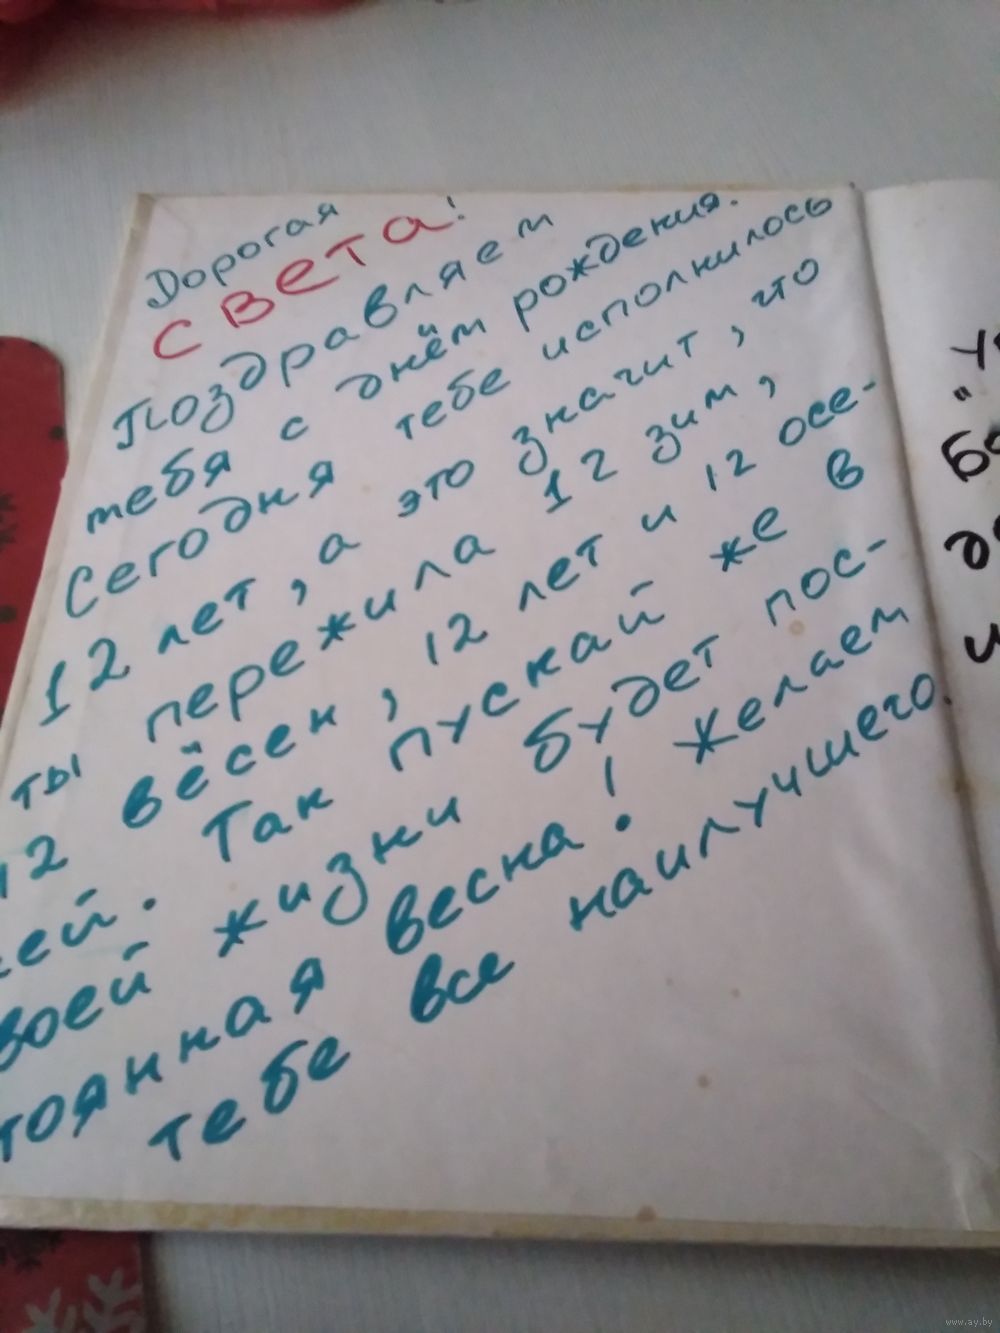 Дорогая
СВЕТА!
Поздравляем
тебя с днём рождения.
Сегодня тебе исполнилось
12 лет, а это значит, что
ты пережила 12 зим,
12 вёсен, 12 лет и 12 осе-
ней. Так пускай же в
воей жизни будет пос-
тоянная весна! Желаем
тебе все наилучшего.
www.ay.by